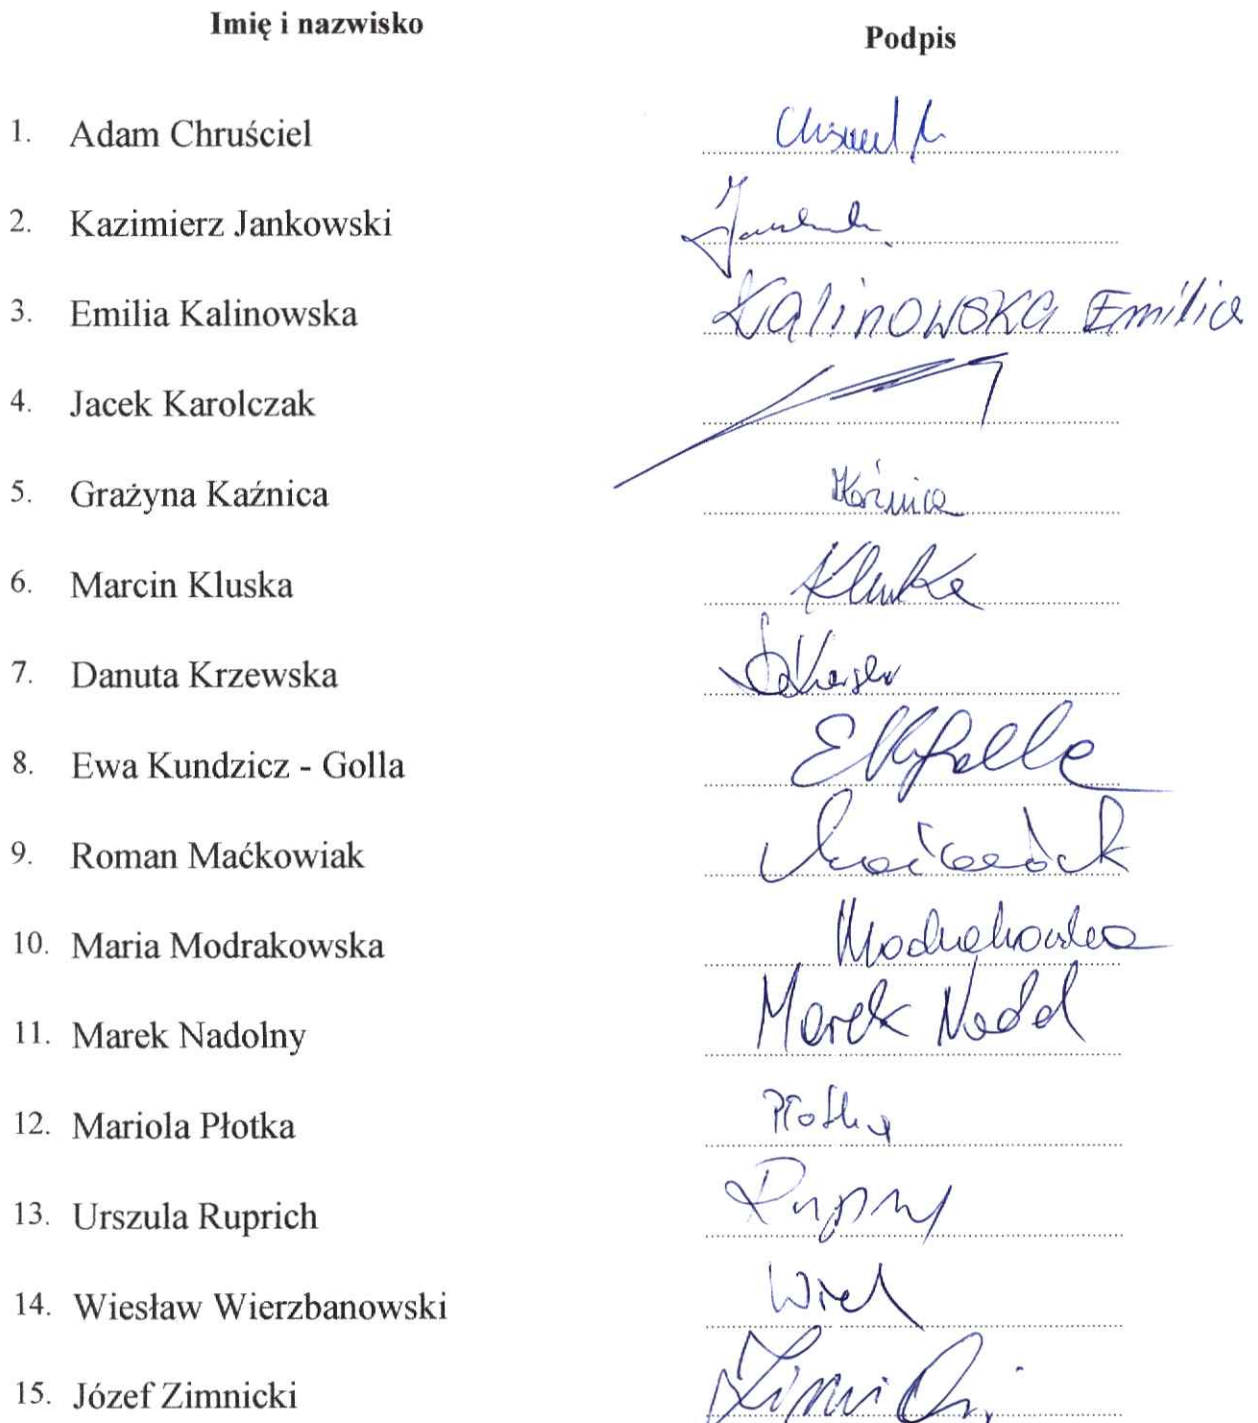 Imię i nazwisko Podpis
1. Adam Chruściel
2. Kazimierz Jankowski
3. Emilia Kalinowska KALINOWSKA Emilia
4. Jacek Karolczak
5. Grażyna Kaźnica Kaźnica
6. Marcin Kluska Kluska
7. Danuta Krzewska
8. Ewa Kundzicz - Golla EKGolla
9. Roman Maćkowiak
10. Maria Modrakowska Modrakowska
11. Marek Nadolny Marek Nadol
12. Mariola Płotka Płotka
13. Urszula Ruprich
14. Wiesław Wierzbanowski
15. Józef Zimnicki